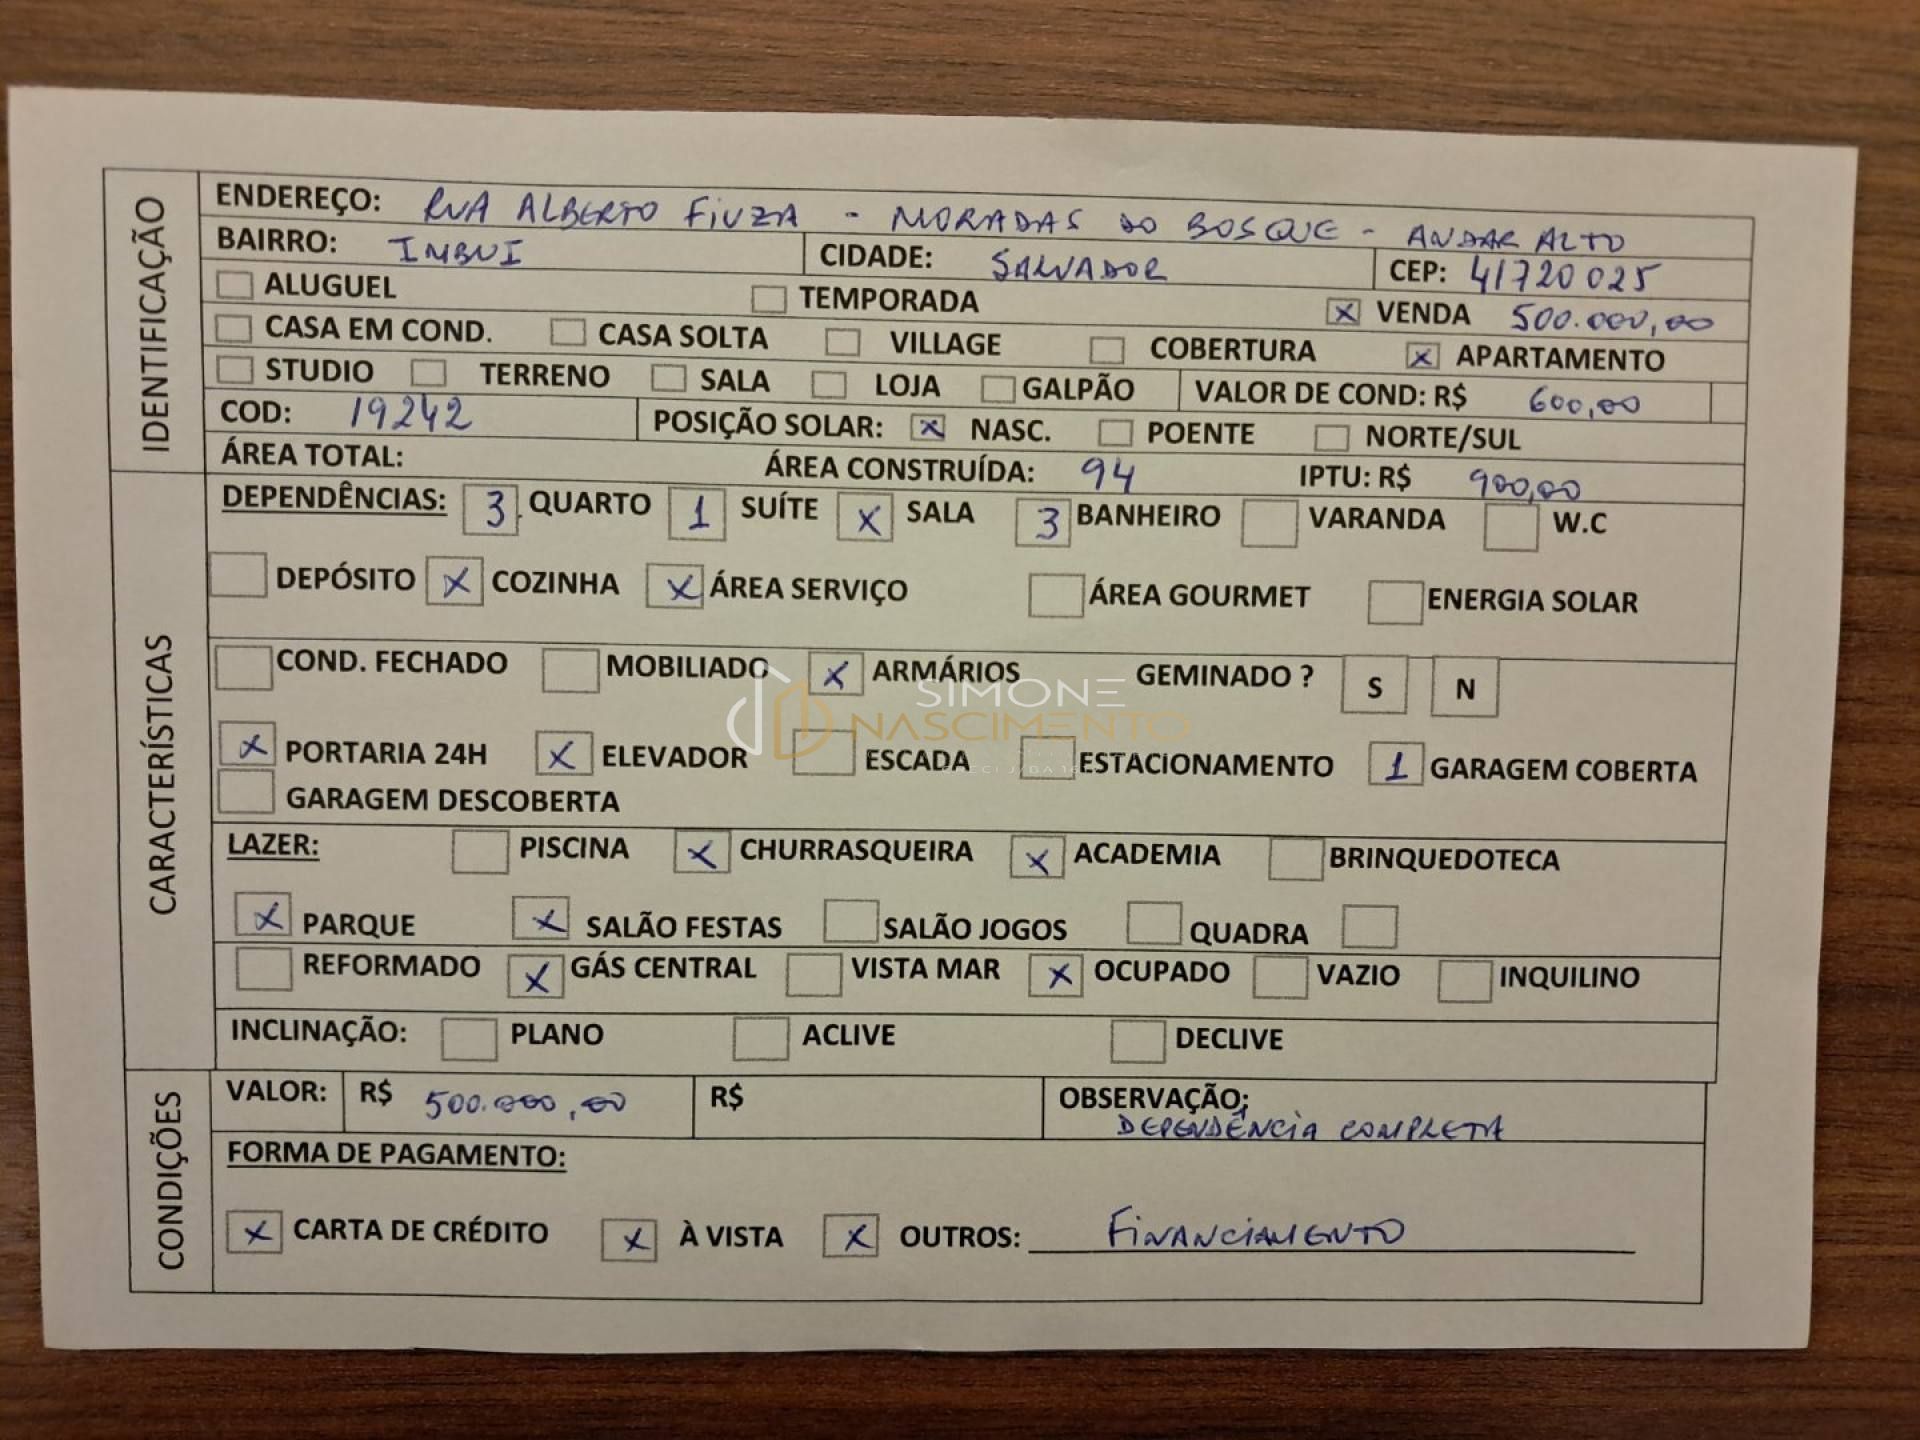 IDENTIFICAÇÃO
ENDEREÇO: RUA ALBERTO FIUZA - MORADAS DO BOSQUE - ANDAR ALTO
BAIRRO: IMBUI CIDADE: SALVADOR CEP: 41720025
ALUGUEL TEMPORADA X VENDA 500.000,00
CASA EM COND. CASA SOLTA VILLAGE COBERTURA X APARTAMENTO
STUDIO TERRENO SALA LOJA GALPÃO VALOR DE COND: R$ 600,00
COD: 19242 POSIÇÃO SOLAR: X NASC. POENTE NORTE/SUL
ÁREA TOTAL: ÁREA CONSTRUÍDA: 94 IPTU: R$ 900,00
CARACTERÍSTICAS
DEPENDÊNCIAS: 3 QUARTO 1 SUÍTE X SALA 3 BANHEIRO VARANDA W.C
DEPÓSITO X COZINHA X ÁREA SERVIÇO ÁREA GOURMET ENERGIA SOLAR
COND. FECHADO MOBILIADO X ARMÁRIOS GEMINADO ? S N
SIMONE
NASCIMENTO
X PORTARIA 24H X ELEVADOR ESCADA ESTACIONAMENTO 1 GARAGEM COBERTA
GARAGEM DESCOBERTA
LAZER: PISCINA X CHURRASQUEIRA X ACADEMIA BRINQUEDOTECA
X PARQUE X SALÃO FESTAS SALÃO JOGOS QUADRA
REFORMADO X GÁS CENTRAL VISTA MAR X OCUPADO VAZIO INQUILINO
INCLINAÇÃO: PLANO ACLIVE DECLIVE
CONDIÇÕES
VALOR: R$ 500.000,00 R$ OBSERVAÇÃO:
DEPENDÊNCIA COMPLETA
FORMA DE PAGAMENTO:
X CARTA DE CRÉDITO X À VISTA X OUTROS: FINANCIAMENTO